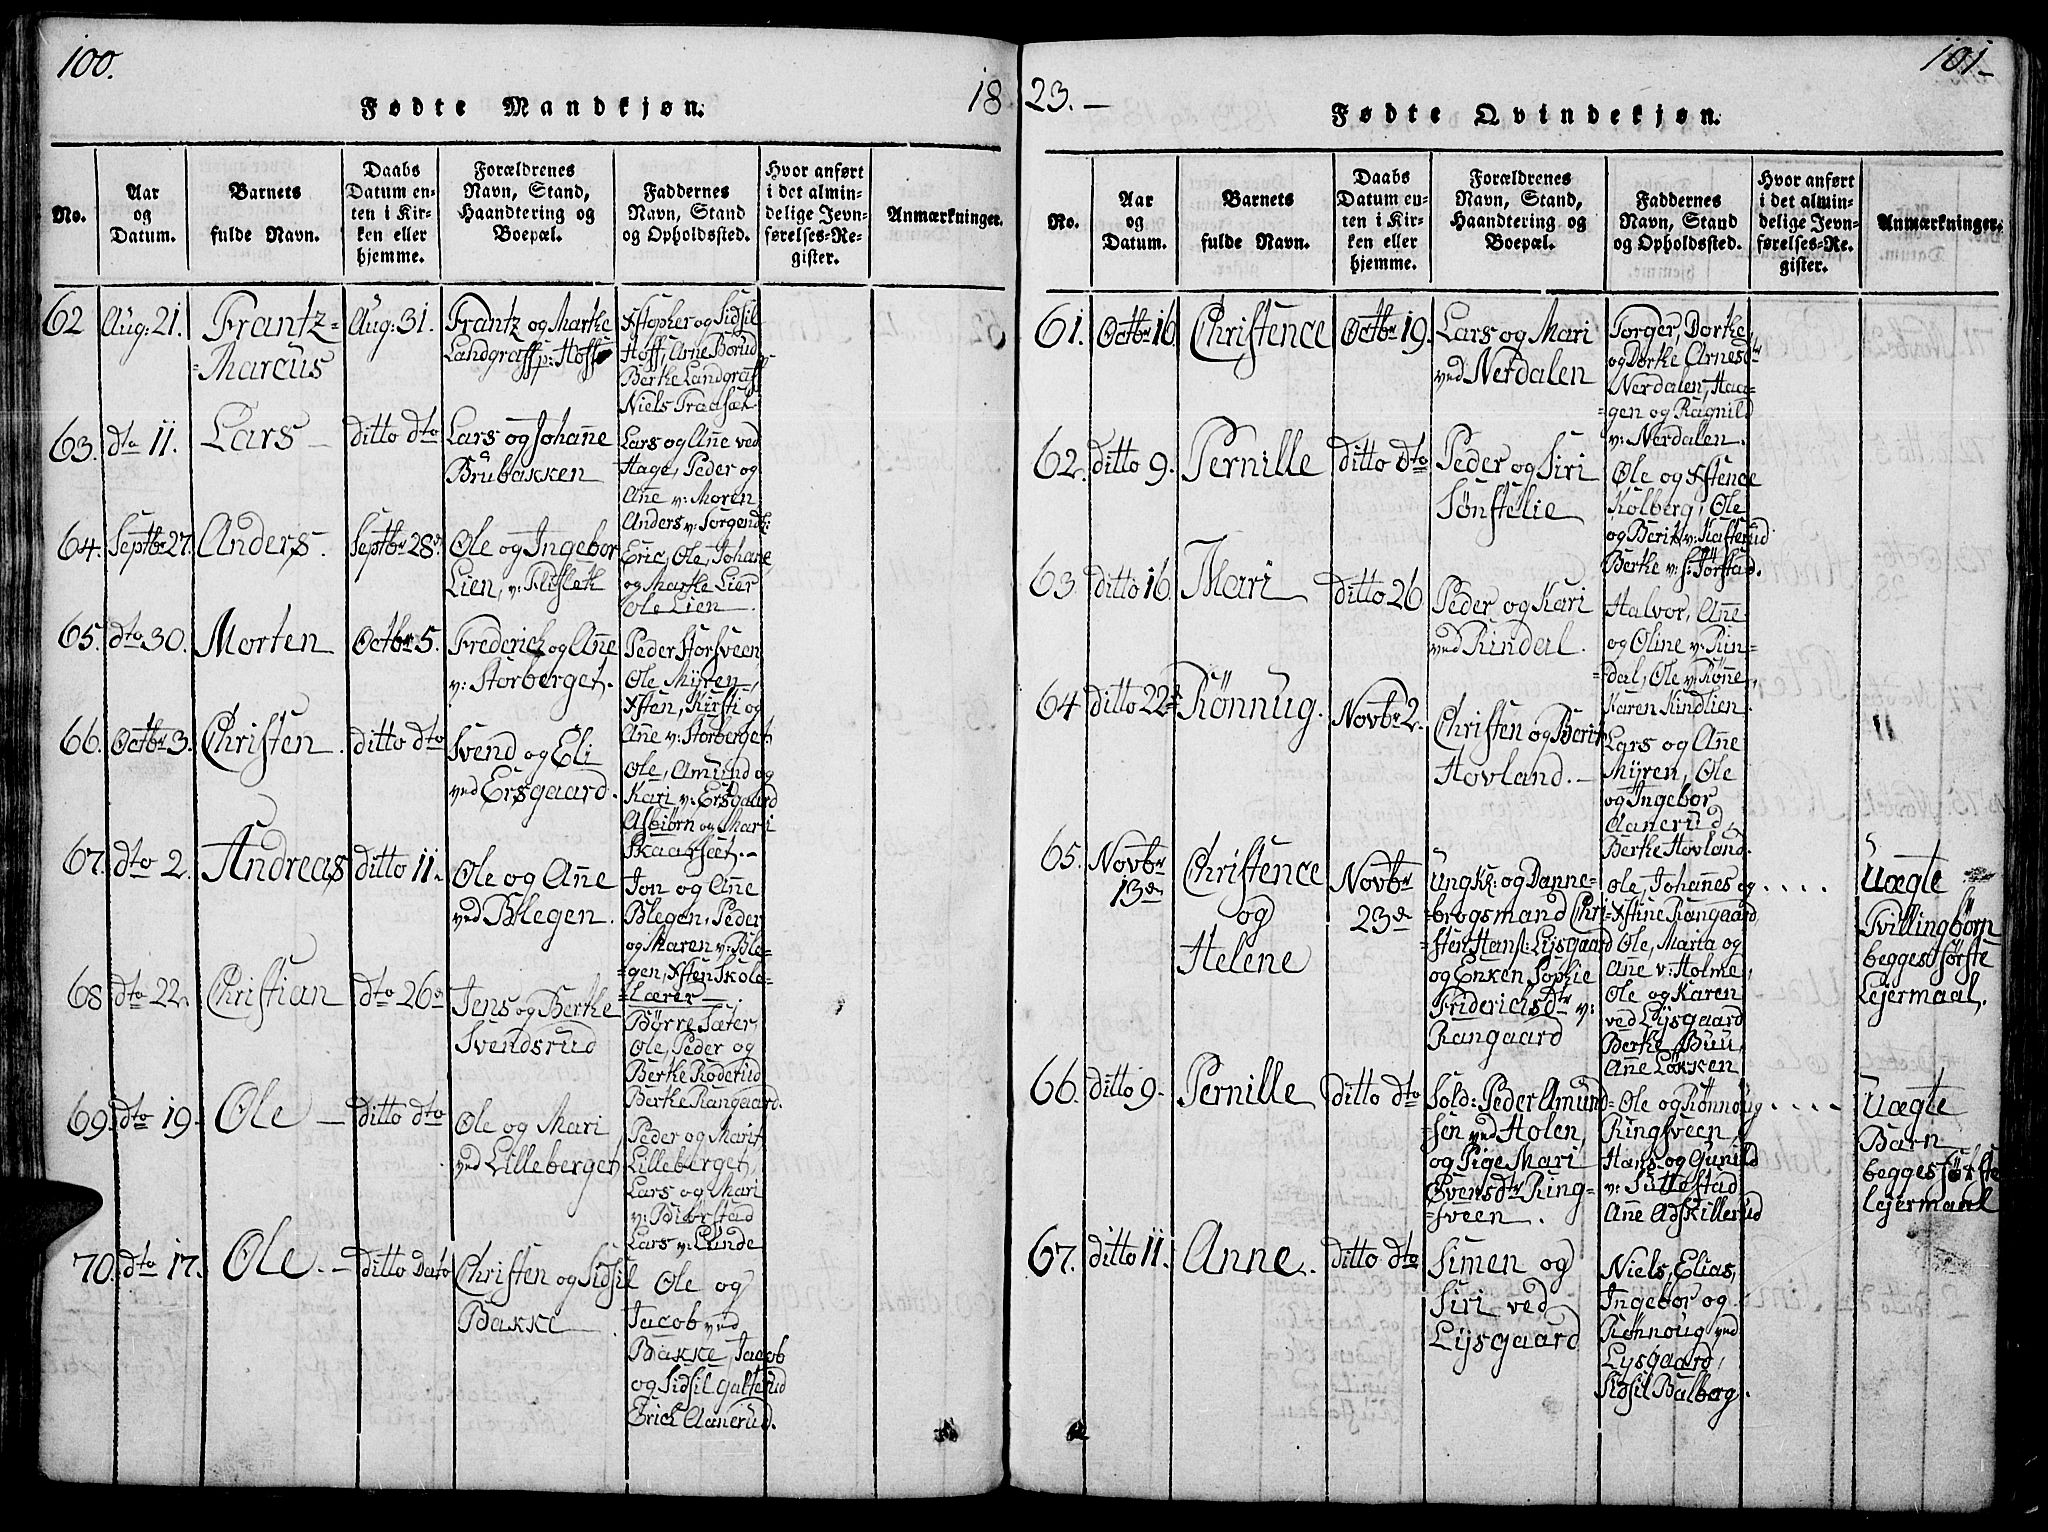 100.
18
Fødte Mandkjøn.
No.
Aar
og
Datum.
Barnets
fulde Navn.
Daabs
Datum en-
ten i Kir-
ken eller
hjemme.
Forældrenes
Navn, Stand,
Haandtering og
Boepæl.
Faddernes
Navn, Stand
og Opholdssted.
Hvor anført
i det almin-
delige Jevn-
førelses-Re-
gister.
Anmærkninger.
62
Aug: 21.
Frantz-
-Marcus
Aug: 31.
Frantz og Marthe
Landgraff p: Hoff
Xstopher og Sidsil
Hoff, Arne Borud
Berthe Landgraff
Niels Traaset
63.
dto 11.
Lars
ditto dto
Lars og Johañe
Brubakken
Lars og Añe ved
Hage, Peder og
Añe v: Moren
Anders v: Jorgenst:
64.
Septbr 27.
Anders.
Septbr 28.
Ole og Ingebor
Lien, v: Fliflet
Eric, Ole, Johañe
og Marthe Lier
Ole Lien
65.
dto 30.
Morten
Octbr 5.
Frederich og Añe
v: Storberget.
Peder Storsveen,
Ole Myren,
Xsten, Kirsti og
Añe v: Storberget
66.
Octbr 3.
Christen.
ditto dto
Svend og Eli
ved Ersgaard.
Ole, Amund og
Kari v: Ersgaard
Asbiørn og Mari
Skaarsæt.
67.
dto 2.
Andreas
ditto 11.
Ole og Añe
ved Blegen.
Jon og Añe
Blegen, Peder
og Maren v: Ble-
-gen, Xsten Skole-
-Lærer
68
dto 22.
Christian
dto 26de
Jens og Berthe
Svendsrud
Børre Sæter,
Ole, Peder og
Berthe Roderud
Berthe Rangaard.
69.
dto 19.
Ole
ditto dto
Ole og Mari
ved Lilleberget
Peder og Marit
Lilleberget,
Lars og Mari
v: Biørstad
Lars v: Lunde
70.
dto 17.
Ole.
ditto Dato
Christen og Sidsil
Bakke
Ole og
Jacob ved
Bakke, Jacob
og Sidsil Galterud
Erich Aanerud.
23.
101
Fødte Qvindekjøn.
No.
Aar
og
Datum.
Barnets
fulde Navn.
Daabs
Datum en-
ten i Kir-
ken eller
hjemme.
Forældrenes
Navn, Stand,
Haandtering og
Boepæl.
Faddernes
Navn, Stand
og Opholdssted.
Hvor anført
i det almin-
delige Jevn-
førelses-Re-
gister.
Anmærkninger.
61.
Octbr 16
Christence
Octbr 19.
Lars og Mari
ved Nerdalen
Torger, Dorthe,
og Dorthe Arnesdtr
Nerdalen, Haa-
-gen og Ragnild
v: Nerdalen.
62.
ditto 9.
Pernille
ditto dto
Peder og Siri
Sønstelie
Ole og Xstence
Kolberg, Ole
og Berit v: Kasterud
Berthe v: S: Jørstad.
63
ditto 16.
Mari
ditto 26
Peder og Kari
ved Rindal.
Halvor, Añe
og Oline v: Rin-
-dal, Ole v: Rønne,
Karen Kindlien.
64
ditto 22de
Rønnug.
Novbr 2.
Christen og Berit
Hovland.
Lars og Añe
Myren, Ole
og Ingebor
Aanerud,
Berthe Hovland.
65.
Novbr
13de
Christence
og
Helene
Novbr
23de
Ungk: og Danne-
brogsmand Chri-
-sten Hans: Lysgaard
og Enken Sophie
Friderichsdtr v:
Rangaard
Ole, Johannes og
Xstine Rangaard,
Ole, Marta og
Añe v: Holme,
Ole og Karen
ved Lysgaard
Berthe Buu,
Añe Løkken
....
Uægte
Tvillingbørn
begges første
Lejermaal.
66.
ditto 9.
Pernille
ditto dto
Sold: Peder Amund-
-sen ved Holen,
og Pige Mari
Evensdtr Ring-
-sveen.
Ole og Rønnoug
Ringsveen,
Hans og Gunild
v: Suttestad
Añe Adskillerud
....
Uægte
Barn
begges første
lejermaal
67.
ditto 11.
Anne.
ditto dto
Simen og
Siri ved
Lysgaard
Niels, Elias,
Ingebor og
Rønnoug ved
Lysgaard,
Sidsil Balberg.